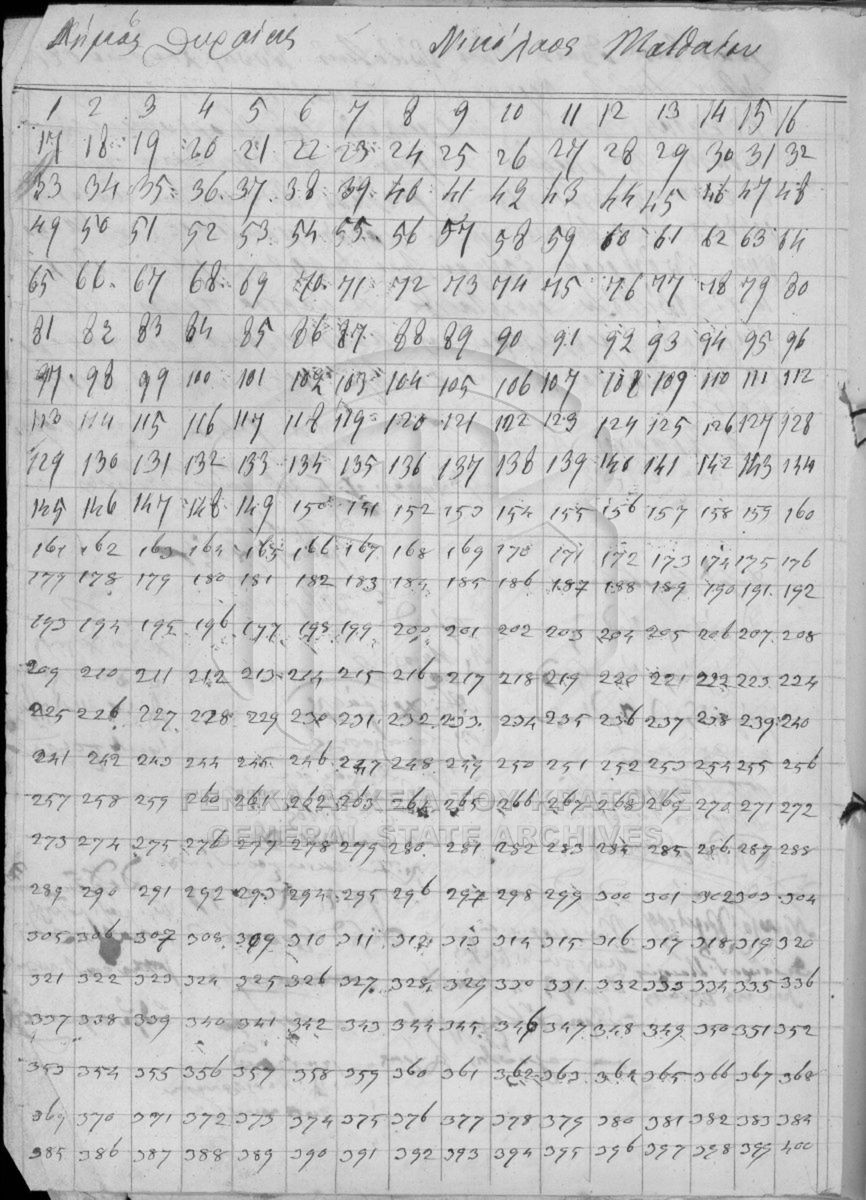 Δήμος Θυραίας Νικόλαος Ματθαίου
1 2 3 4 5 6 7 8 9 10 11 12 13 14 15 16
17 18 19 20 21 22 23 24 25 26 27 28 29 30 31 32
33 34 35 36 37 38 39 40 41 42 43 44 45 46 47 48
49 50 51 52 53 54 55 56 57 58 59 60 61 62 63 64
65 66 67 68 69 70 71 72 73 74 75 76 77 78 79 80
81 82 83 84 85 86 87 88 89 90 91 92 93 94 95 96
97 98 99 100 101 102 103 104 105 106 107 108 109 110 111 112
113 114 115 116 117 118 119 120 121 122 123 124 125 126 127 128
129 130 131 132 133 134 135 136 137 138 139 140 141 142 143 144
145 146 147 148 149 150 151 152 153 154 155 156 157 158 159 160
161 162 163 164 165 166 167 168 169 170 171 172 173 174 175 176
177 178 179 180 181 182 183 184 185 186 187 188 189 190 191 192
193 194 195 196 197 198 199 200 201 202 203 204 205 206 207 208
209 210 211 212 213 214 215 216 217 218 219 220 221 222 223 224
225 226 227 228 229 230 231 232 233 234 235 236 237 238 239 240
241 242 243 244 245 246 247 248 249 250 251 252 253 254 255 256
257 258 259 260 261 262 263 264 265 266 267 268 269 270 271 272
ΓΕΝΙΚΑ ΑΡΧΕΙΑ ΤΟΥ ΚΡΑΤΟΥΣ
GENERAL STATE ARCHIVES
273 274 275 276 277 278 279 280 281 282 283 284 285 286 287 288
289 290 291 292 293 294 295 296 297 298 299 300 301 302 303 304
305 306 307 308 309 310 311 312 313 314 315 316 317 318 319 320
321 322 323 324 325 326 327 328 329 330 331 332 333 334 335 336
337 338 339 340 341 342 343 344 345 346 347 348 349 350 351 352
353 354 355 356 357 358 359 360 361 362 363 364 365 366 367 368
369 370 371 372 373 374 375 376 377 378 379 380 381 382 383 384
385 386 387 388 389 390 391 392 393 394 395 396 397 398 399 400